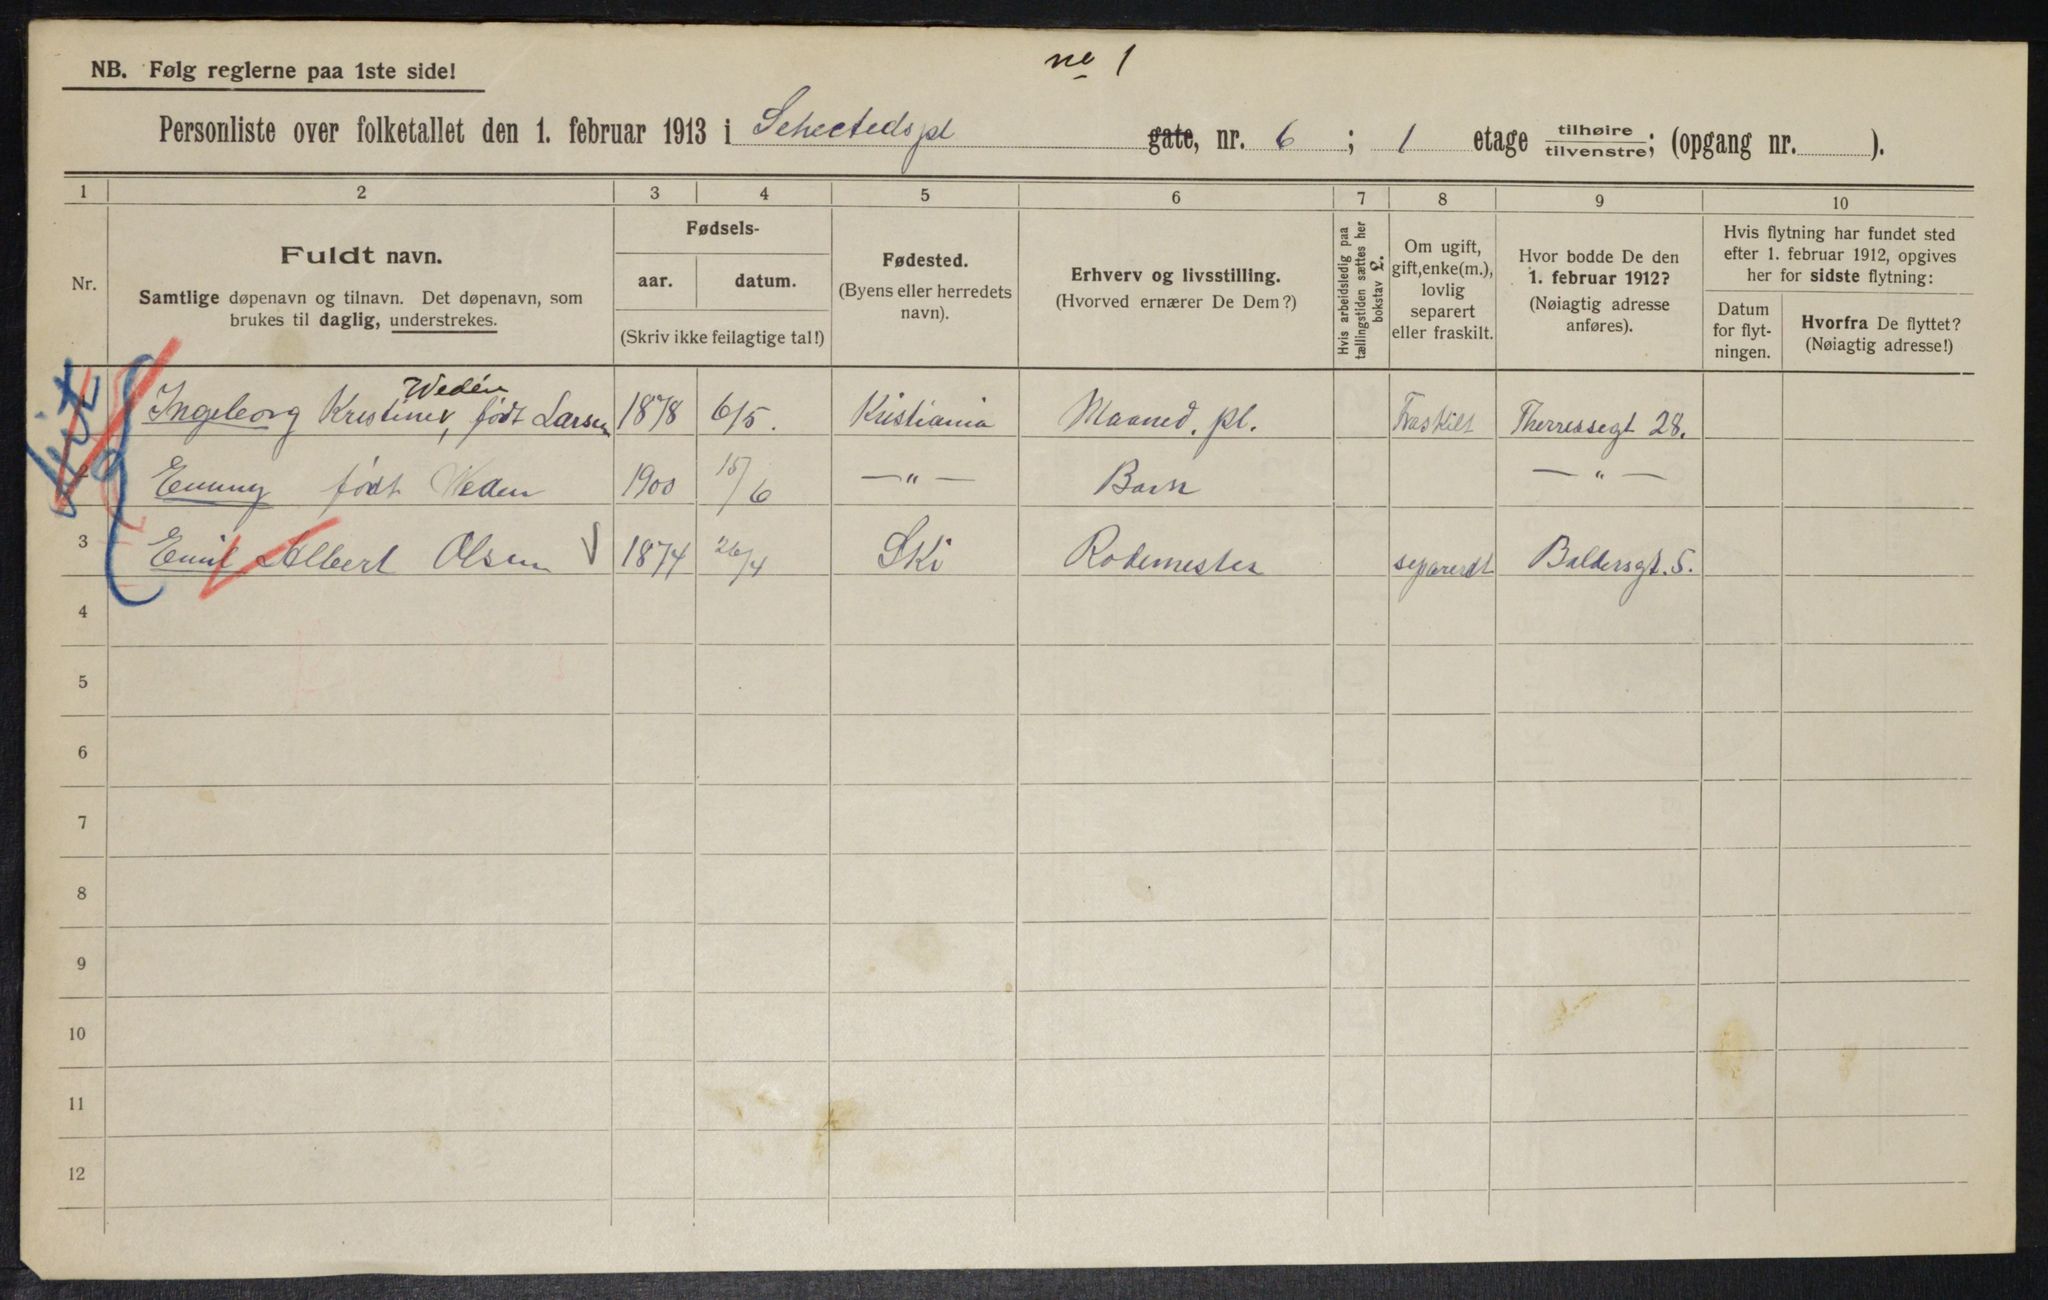 no 1
NB. Følg reglerne paa 1ste side!
Personliste over folketallet den 1. februar 1913 i Schectedspl gate, nr. 6 ; 1 etage tilhøire tilvenstre; (opgang nr. ).
1 2 3 4 5 6 7 8 9 10
Nr.
Fuldt navn.
Samtlige døpenavn og tilnavn. Det døpenavn, som
brukes til daglig, understrekes.
Fødsels-
aar. datum.
(Skriv ikke feilagtige tal!)
Fødested.
(Byens eller herredets
navn).
Erhverv og livsstilling.
(Hvorved ernærer De Dem?)
Hvis arbeidsledig paa
tællingstiden sættes her
bokstav L.
Om ugift,
gift,enke(m.),
lovlig
separert
eller fraskilt.
Hvor bodde De den
1. februar 1912?
(Nøiagtig adresse
anføres).
Hvis flytning har fundet sted
efter 1. februar 1912, opgives
her for sidste flytning:
Datum
for flyt-
ningen.
Hvorfra De flyttet?
(Nøiagtig adresse!)
Wedén
Ingeborg Kristine, født Larsen 1878 6/5. Kristiania Maaned. pl. Fraskilt Therresegt 28.
2 Emmy født Weden 1900 15/6 —"— Barn —"—
3 Emil Albert Olsen 1874 26/4 Ski Rodemester separerdt Baldersgt. 5.
4
5
6
7
8
9
10
11
12